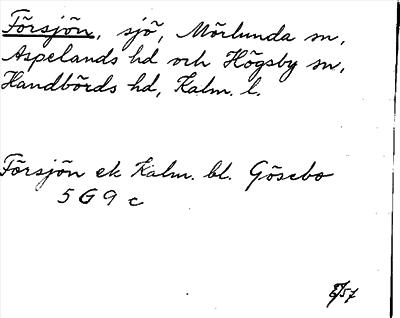 Försjön, sjö, Mörlunda sn,
Aspelands hd och Högsby sn,
Handbörds hd, Kalm. l.
Försjön ek Kalm. bl. Gösebo
5 G 9 c